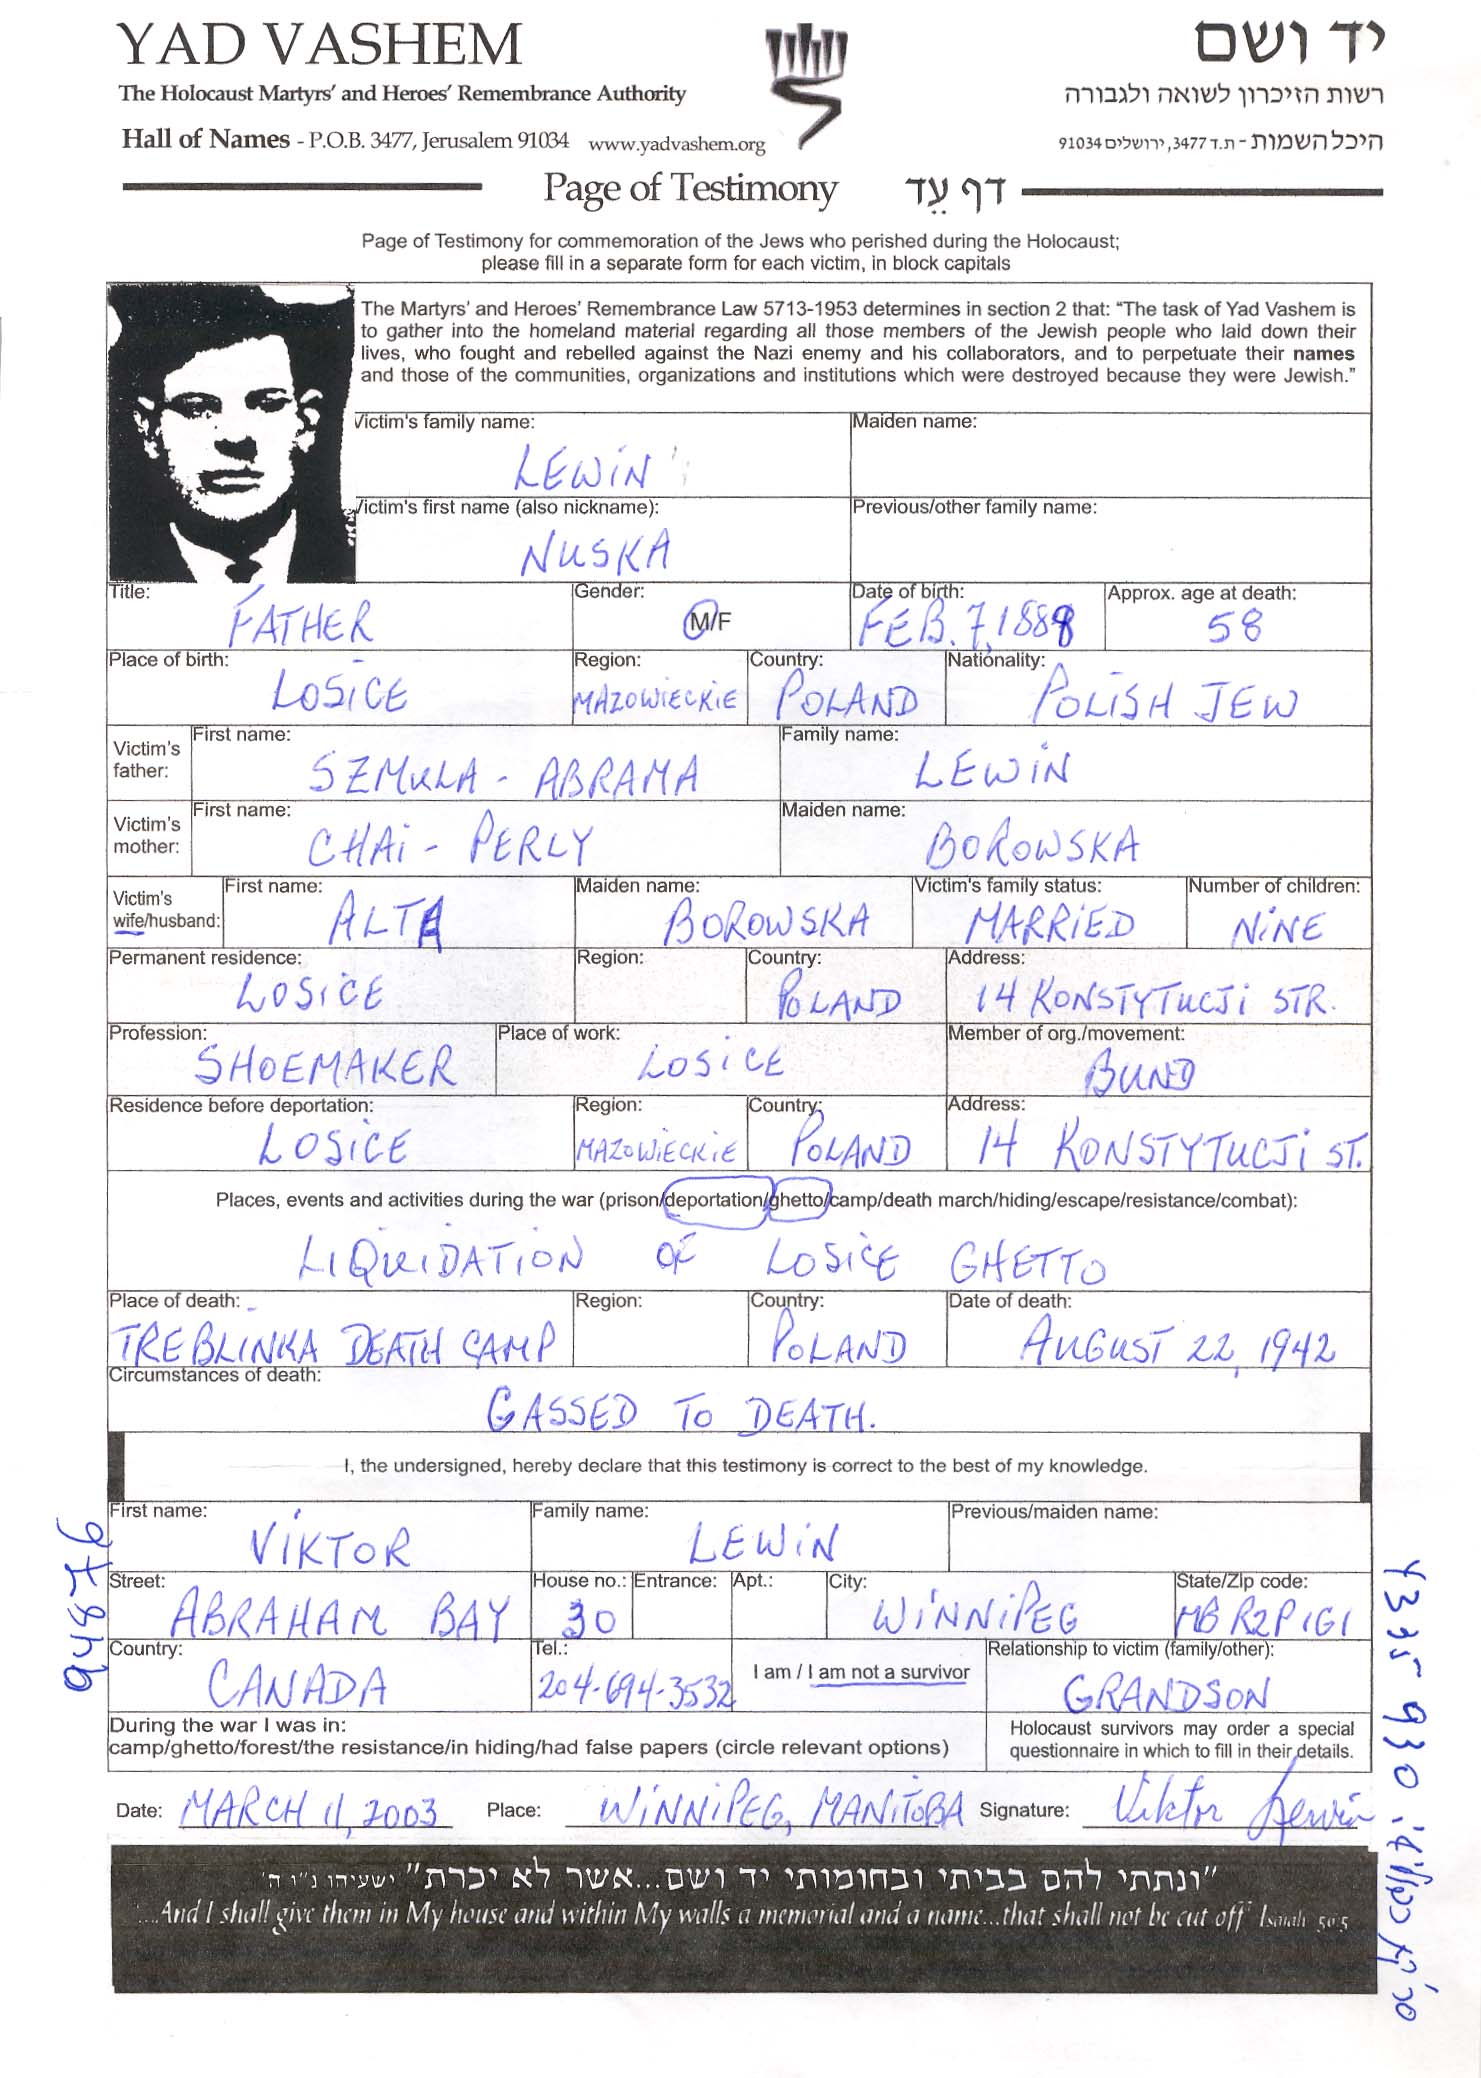 YAD VASHEM
יד ושם
The Holocaust Martyrs' and Heroes' Remembrance Authority
רשות הזיכרון לשואה ולגבורה
Hall of Names - P.O.B. 3477, Jerusalem 91034 www.yadvashem.org
היכל השמות - ת.ד 3477, ירושלים 91034
Page of Testimony דף עֵד
Page of Testimony for commemoration of the Jews who perished during the Holocaust;
please fill in a separate form for each victim, in block capitals
The Martyrs' and Heroes' Remembrance Law 5713-1953 determines in section 2 that: "The task of Yad Vashem is
to gather into the homeland material regarding all those members of the Jewish people who laid down their
lives, who fought and rebelled against the Nazi enemy and his collaborators, and to perpetuate their names
and those of the communities, organizations and institutions which were destroyed because they were Jewish."
Victim's family name: Maiden name:
LEWIN
Victim's first name (also nickname): Previous/other family name:
NUSKA
Title: Gender: Date of birth: Approx. age at death:
FATHER M/F FEB. 7, 1888 58
Place of birth: Region: Country: Nationality:
LOSICE MAZOWIECKIE POLAND POLISH JEW
Victim's father: First name: Family name:
SZMULA - ABRAMA LEWIN
Victim's mother: First name: Maiden name:
CHAI - PERLY BOROWSKA
Victim's wife/husband: First name: Maiden name: Victim's family status: Number of children:
ALTA BOROWSKA MARRIED NINE
Permanent residence: Region: Country: Address:
LOSICE POLAND 14 KONSTYTUCJI STR.
Profession: Place of work: Member of org./movement:
SHOEMAKER LOSICE BUND
Residence before deportation: Region: Country: Address:
LOSICE MAZOWIECKIE POLAND 14 KONSTYTUCJI ST.
Places, events and activities during the war (prison/deportation/ghetto/camp/death march/hiding/escape/resistance/combat):
LIQUIDATION OF LOSICE GHETTO
Place of death: Region: Country: Date of death:
TREBLINKA DEATH CAMP POLAND AUGUST 22, 1942
Circumstances of death:
GASSED TO DEATH.
I, the undersigned, hereby declare that this testimony is correct to the best of my knowledge.
First name: Family name: Previous/maiden name:
VIKTOR LEWIN
Street: House no.: Entrance: Apt.: City: State/Zip code:
ABRAHAM BAY 30 WINNIPEG MB R2P 1G1
Country: Tel.: I am / I am not a survivor Relationship to victim (family/other):
CANADA 204-694-3532 GRANDSON
During the war I was in: Holocaust survivors may order a special
camp/ghetto/forest/the resistance/in hiding/had false papers (circle relevant options) questionnaire in which to fill in their details.
Date: MARCH 11, 2003 Place: WINNIPEG, MANITOBA Signature: Viktor Lewin
"ונתתי להם בביתי ובחומותי יד ושם...אשר לא יכרת" ישעיהו נ"ו ה'
"...And I shall give them in My house and within My walls a memorial and a name...that shall not be cut off" Isaiah 56:5